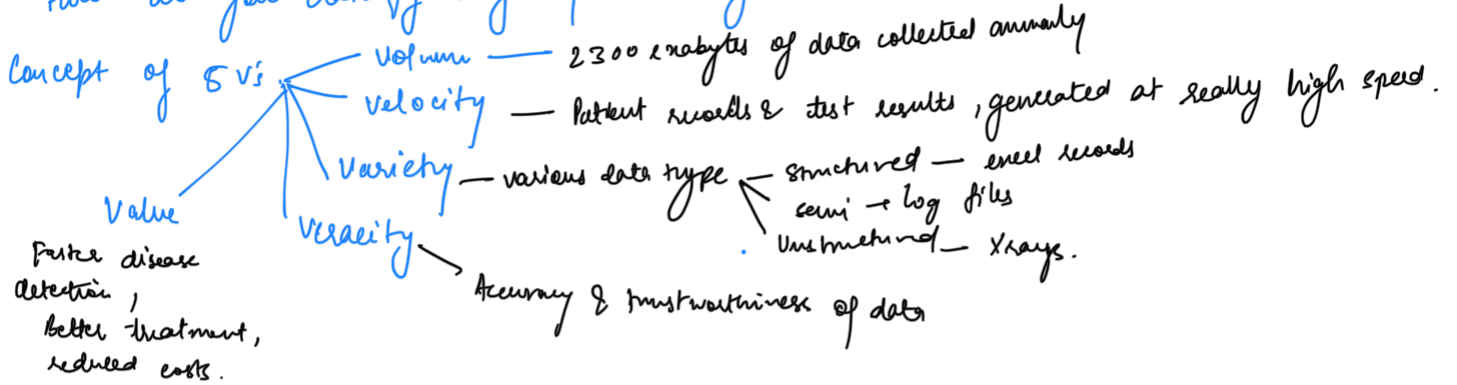 Concept of 5 V's
Volume — 2300 exabytes of data collected annualy
Velocity — Patient records & test results, generated at really high speed.
Variety — various data type — structured — excel records
semi → log files
Unstructured — Xrays.
Veracity
Accuracy & trustworthiness of data
Value
Faster disease
detection,
Better treatment,
reduced costs.